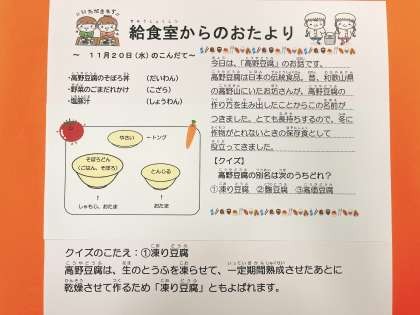 いただきます
給食室からのおたより
～ 11月20日(水)のこんだて～
・高野豆腐のそぼろ丼 (だいわん)
・野菜のごまだれかけ (こざら)
・塩豚汁 (しょうわん)
やさい ートング
そぼろどん
(ごはん、そぼろ)
とんじる
しゃもじ、おたま
おたま
今日は、「高野豆腐」のお話です。
高野豆腐は日本の伝統食品。昔、和歌山県
の高野山にいたお坊さんが、高野豆腐の
作り方を生み出したことからこの名前が
つきました。とても長持ちするので、冬に
作物がとれないときの保存食として
役立ってきました。
【クイズ】
高野豆腐の別名は次のうちどれ？
①凍り豆腐 ②麵豆腐 ③高価豆腐
クイズのこたえ：①凍り豆腐
高野豆腐は、生のとうふを凍らせて、一定期間熟成させたあとに
乾燥させて作るため「凍り豆腐」ともよばれます。